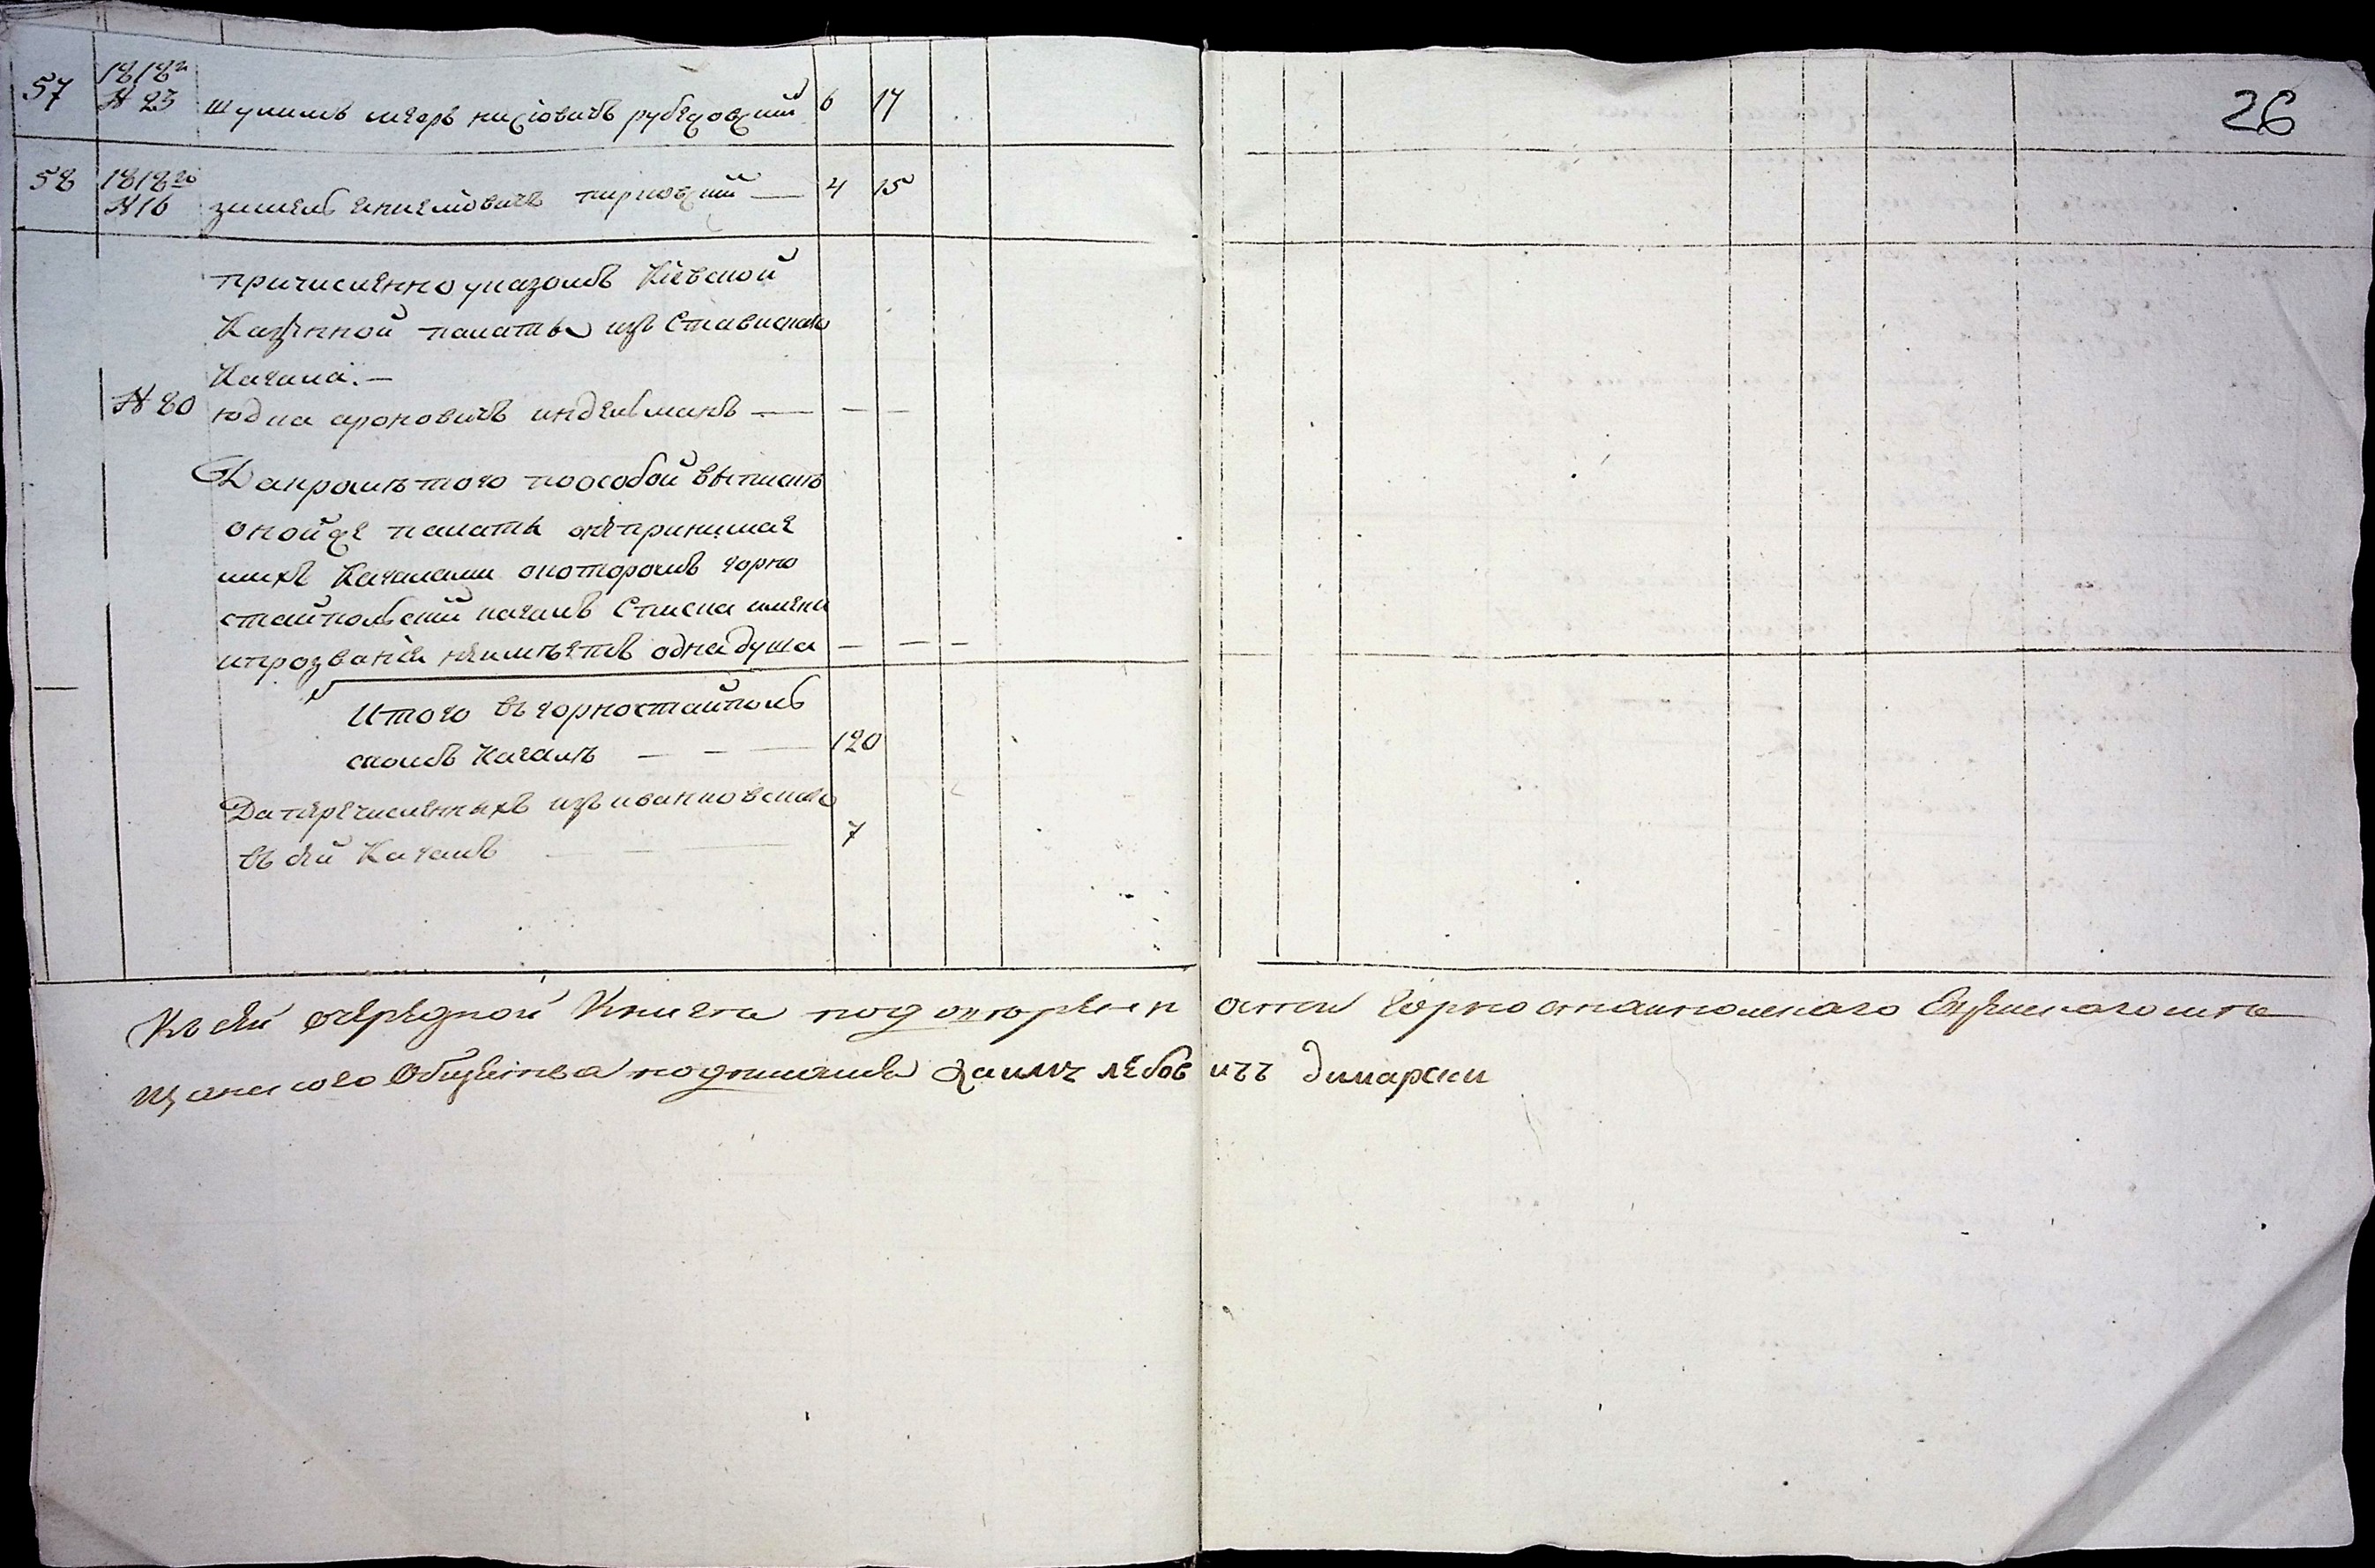 26
57 1818го № 23 шулимъ мееръ нисіовичъ рубежовскій 6 17
58 1818го № 16 зимель хпиелиовичъ пирновскій — 4 15
причисленно указомъ Кіевской
Казенной палаты изъ Ставискаго
Кагала. —
№ 80 юдка ароновичъ индельманъ — — —
Да кромѣ того по особой выписке
оной же палаты о не принимае
михъ Кагалами о котором горно
стайпольскій кагалъ Списка имени
и прозванія не имѣетъ одна душа — — —
Итого въ горностайполь
скомъ Кагалѣ — — — 120
Да перечисленныхъ изъ иванковскаго
въ сей Кагалъ — — — 7
Къ сей очередной Книги под
Горностайполскаго Еврейскаго ме
щанского Общества подписалса хаимъ лебовичъ димарски